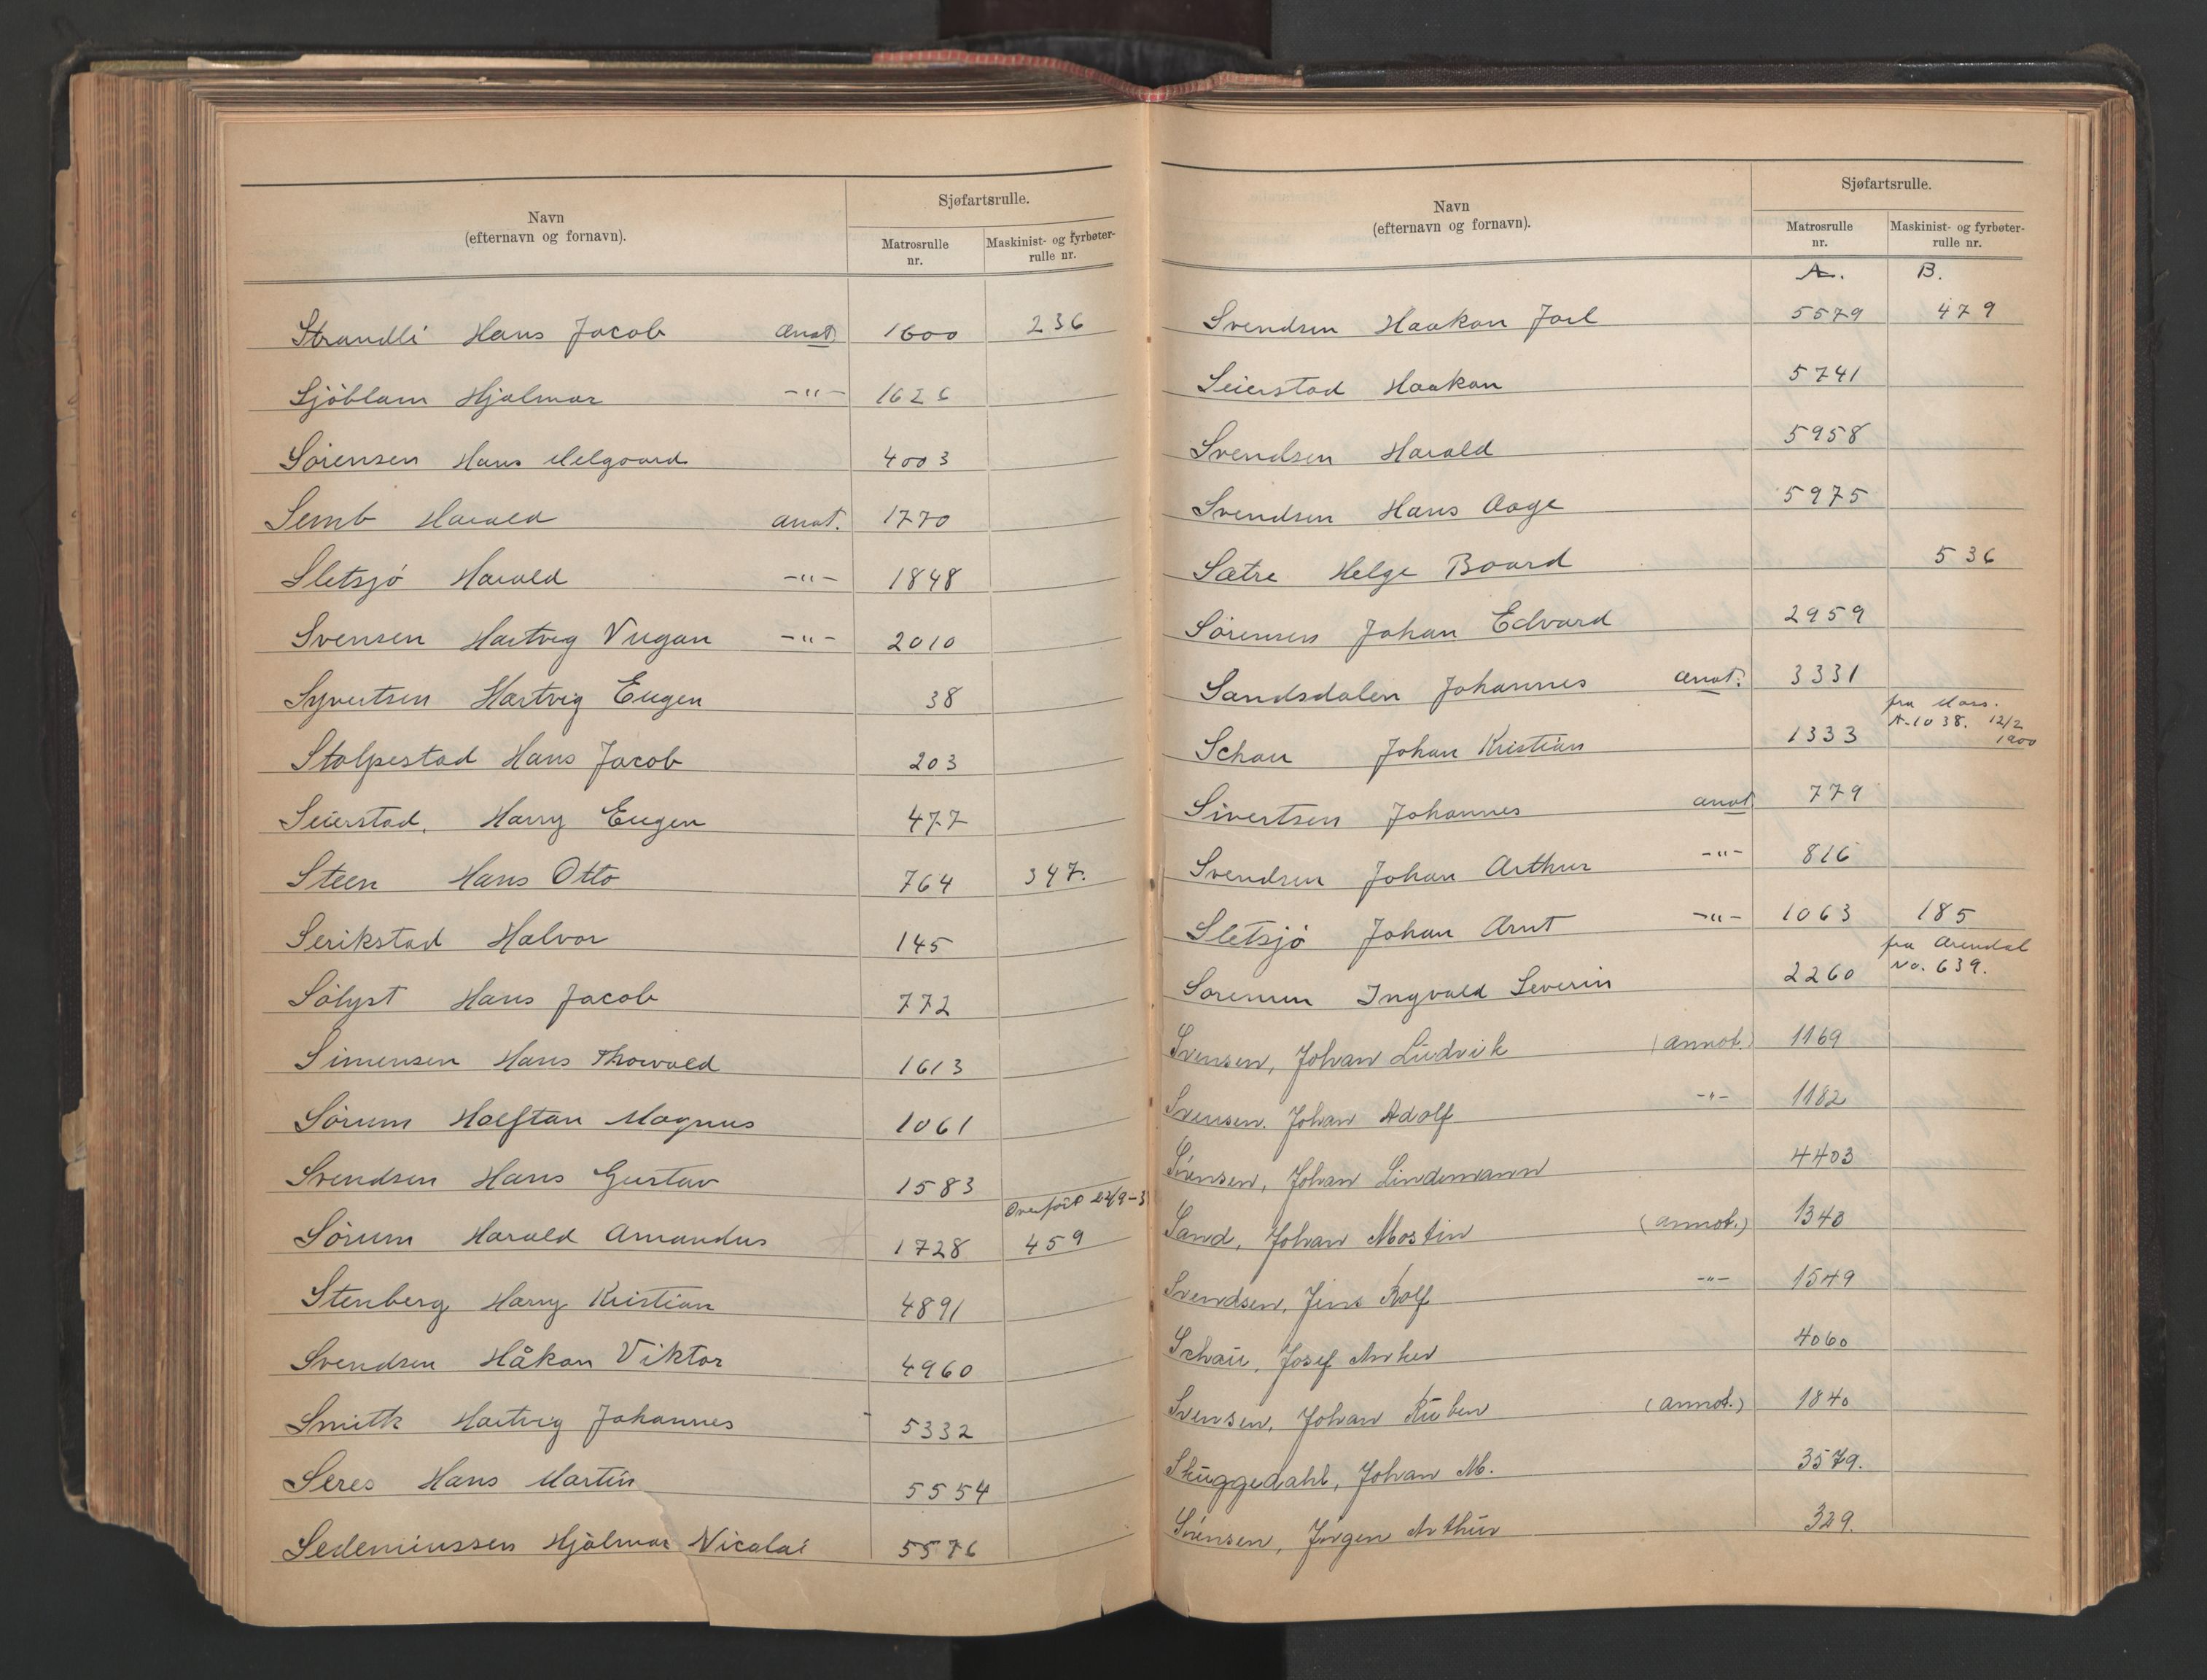 Navn
(efternavn og fornavn).
Sjøfartsrulle.
Matrosrulle
nr.
Maskinist- og fyrbøter-
rulle nr.
Strandli Hans Jacob anot. 1600 236
Sjöblam Hjalmar -"- 1626
Sörensen Hans Melgaard 4003
Semb Harald anot. 1770
Sletsjö Harald -"- 1848
Svensen Hartvig -"- 2010
Syvertsen Hartvig Eugen 38
Stolpestad Hans Jacob 203
Seierstad. Harry Eugen 477
Steen Hans Otto 764 347.
Serikstad Halvor 145
Sölyst Hans Jacob 772
Simensen Hans Thorvald 1613
Sörum Halftan Magnus 1061
Svendsen Hans Gustav 1583
Overfört 22/9-3
Sörum Harald Amandus 1728 459
Stenberg Harry Kristian 4891
Svendsen Håkon Viktor 4960
Smith Hartvig Johannes 5332
Seres Hans Martin 5554
Hjalmar Nicolai 5576
Navn
(efternavn og fornavn).
Sjøfartsrulle.
Matrosrulle
nr.
Maskinist- og fyrbøter-
rulle nr.
A. B.
Svendsen Haakon Jarl 5579 479
Seierstad Haakon 5741
Svendsen Harald 5958
Svendsen Hans Aage 5975
Sætre Helge Baard 536
Sörensen Johan Edvard 2959
Sandsdalen Johannes anot. 3331
fra Mars.
A-1038. 12/2
1900
Schau Johan Kristian 1333
Sivertsen Johannes anot 779
Svendsen Johan Arthur -"- 816
Sletsjö Johan Arnt -"- 1063 185
fra Arendal
No. 639.
Sorensen Ingvald Severin 2260
Svensen, Johan Ludvik (annot.) 1169
Svensen. Johan Adolf -"- 1182
Sörensen, Johan Lindemann 4403
Sand, Johan Mostin (annot.) 1340
Svendsen, Jens Rolf -"- 1549
Schau, Josef Anker 4060
Svensen, Johan Ruben (annot.) 1840
Skuggedahl, Johan M. 3579.
Sörensen, Jörgen Arthur 329.